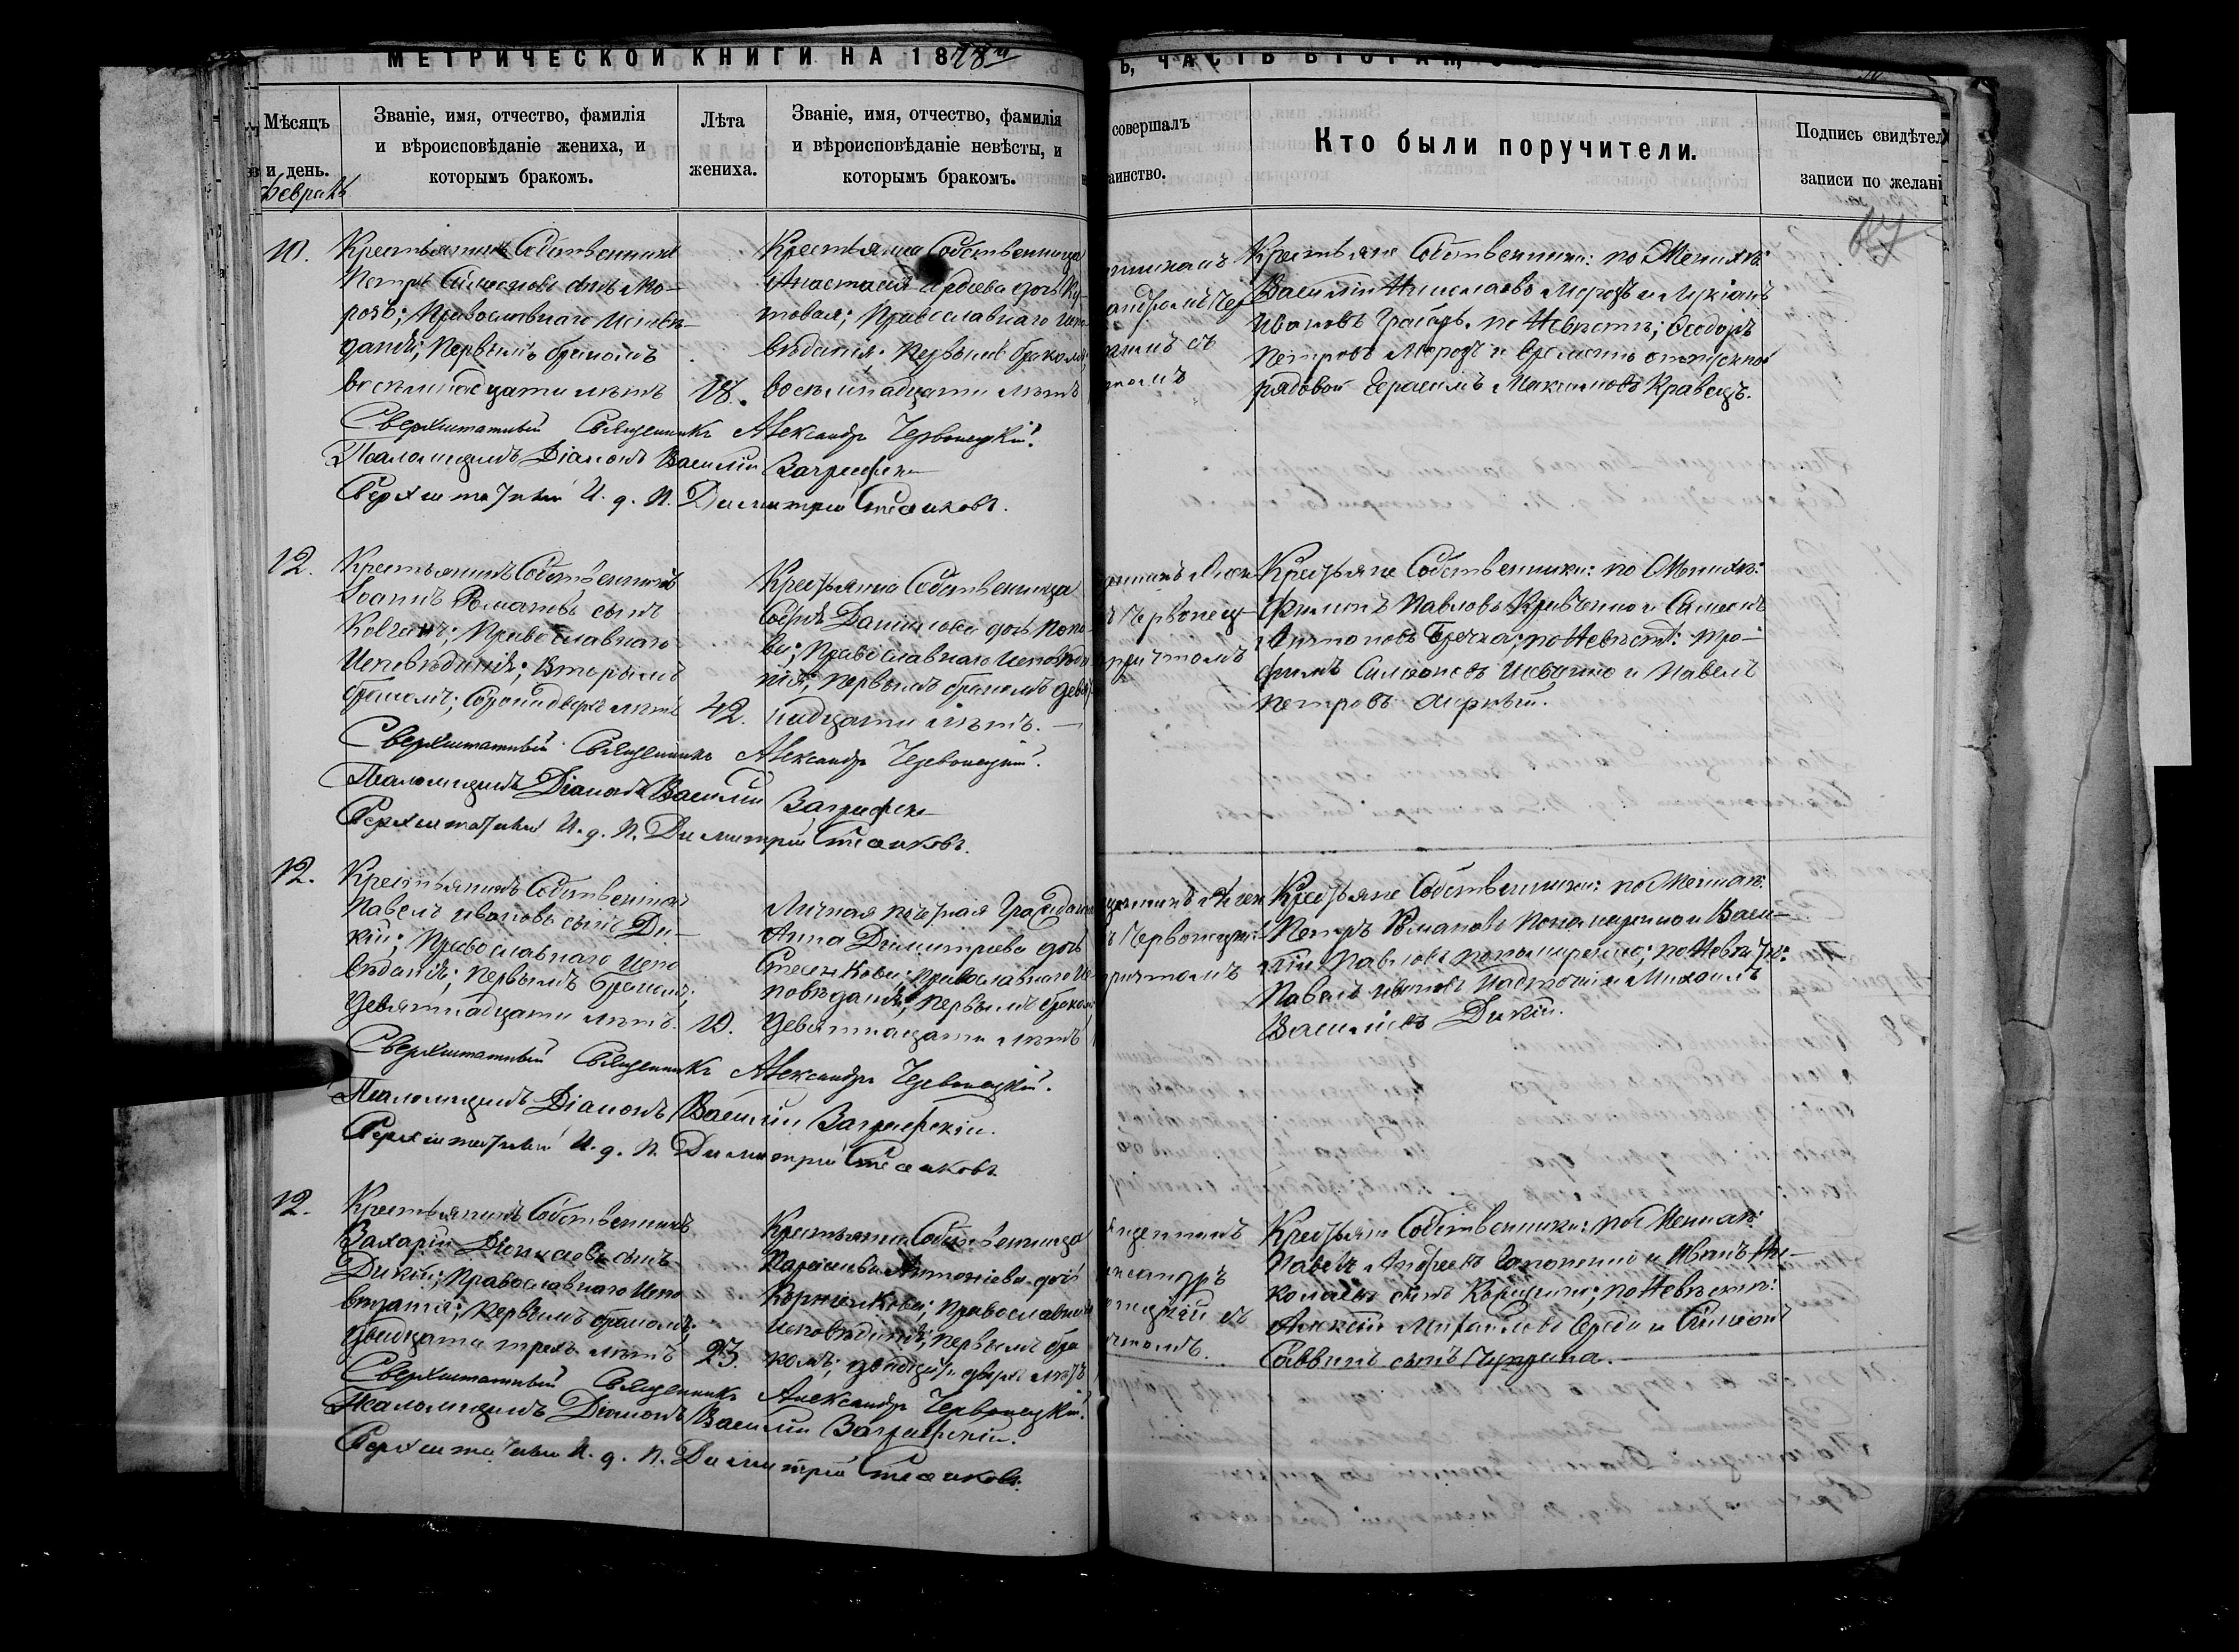 МЕТРИЧЕСКОЙ КНИГИ НА 1878
Ъ, ЧАСТЬ ВТОРАЯ,
Мѣсяцъ
и день.
Февраль
Званіе, имя, отчество, фамилія
и вѣроисповѣданіе жениха, и
которымъ бракомъ.
Лѣта
жениха.
Званіе, имя, отчество, фамилія
и вѣроисповѣданіе невѣсты, и
которымъ бракомъ.
совершалъ
аинство.
Кто были поручители.
Подпись свидѣтел
записи по желані
10.
Крестьянинъ Собственникъ
Петръ Симеоновъ сынъ Мо-
розъ; Православнаго Исповѣ-
данія; первымъ бракомъ
восемнадцати лѣтъ
18.
Крестьянка Собственница
Анастасія дочь
Православнаго Испо-
вѣданія; первымъ бракомъ;
восемнадцати лѣтъ
Крестьяне Собственники: по Женихѣ:
Василій Николаевъ Морозъ и Лукіанъ
Ивановъ по Невѣстѣ; Ѳеодоръ
Петровъ Морозъ и временно отпускной
рядовой Герасимъ Максимовъ Кравецъ.
Сверхштатный Священникъ Александръ Червонецкій.
Псаломщикъ Діаконъ Василій
Сверхштатный И. д. П. Димитрій Стесенковъ.
12.
Крестьянинъ Собственникъ
Іоаннъ Романовъ сынъ
Православнаго
Исповѣданія; Вторымъ
бракомъ; Сорокадвухъ лѣтъ
42.
Крестьянка Собственница
Софія Даніилова дочь Попо-
ва; Православнаго Исповѣда
нія; первымъ бракомъ девят
надцати лѣтъ.
ъ Червонец
причтомъ
Крестьяне Собственники: по Женихѣ:
Филипъ Павловъ Кривенко и Симеонъ
Антоновъ Гречка; по Невѣстѣ: Тро-
фимъ Симоновъ Шевченко и Павелъ
Петровъ
Сверхштатный Священникъ Александръ Червонецкій.
Псаломщикъ Діаконъ Василій
Сверхштатный И. д. П. Димитрій Стесенковъ.
12.
Крестьянинъ Собственникъ
Павелъ Ивановъ сынъ Ди-
кій; Православнаго Испо
вѣданія; первымъ бракомъ;
девятнадцати лѣтъ.
19.
Личная почетная Граждан
Анна Димитріева дочь
Стесенкова; Православнаго Ис
повѣданія, первымъ браком
девятнадцати лѣтъ
ъ Червонецкі
причтомъ
Крестьяне Собственники: по Женихѣ:
Петръ Романовъ Пономаренко и Васи-
лій Павловъ Пономаренко; по Невѣстѣ:
Павелъ Ивановъ Надточій и Михаилъ
Васильевъ Дикій.
Сверхштатный Священникъ Александръ Червонецкій.
Псаломщикъ Діаконъ Василій
Сверхштатный И. д. П. Димитрій Стесенковъ
12.
Крестьянинъ Собственникъ
Захарій сынъ
Дикій; Православнаго Испо
вѣданія; первымъ бракомъ;
двадцати трехъ лѣтъ
23.
Крестьянка Собственница
Параскева Антоніева дочь
Корніенкова; Православнаго
Исповѣданія; первымъ бра
комъ; двадцати двухъ лѣтъ
ександръ
онецкій съ
чтомъ.
Крестьяне Собственники: по Женихѣ:
Павелъ Андреевъ Гапоненко и Иванъ Ни-
колаевъ сынъ по Невѣстѣ:
Алексѣй Михайловъ Середа и Симеонъ
Саввинъ сынъ Чуприна.
Сверхштатный Священникъ Александръ Червонецкій.
Псаломщикъ Діаконъ Василій
Сверхштатный И. д. П. Димитрій Стесенковъ.